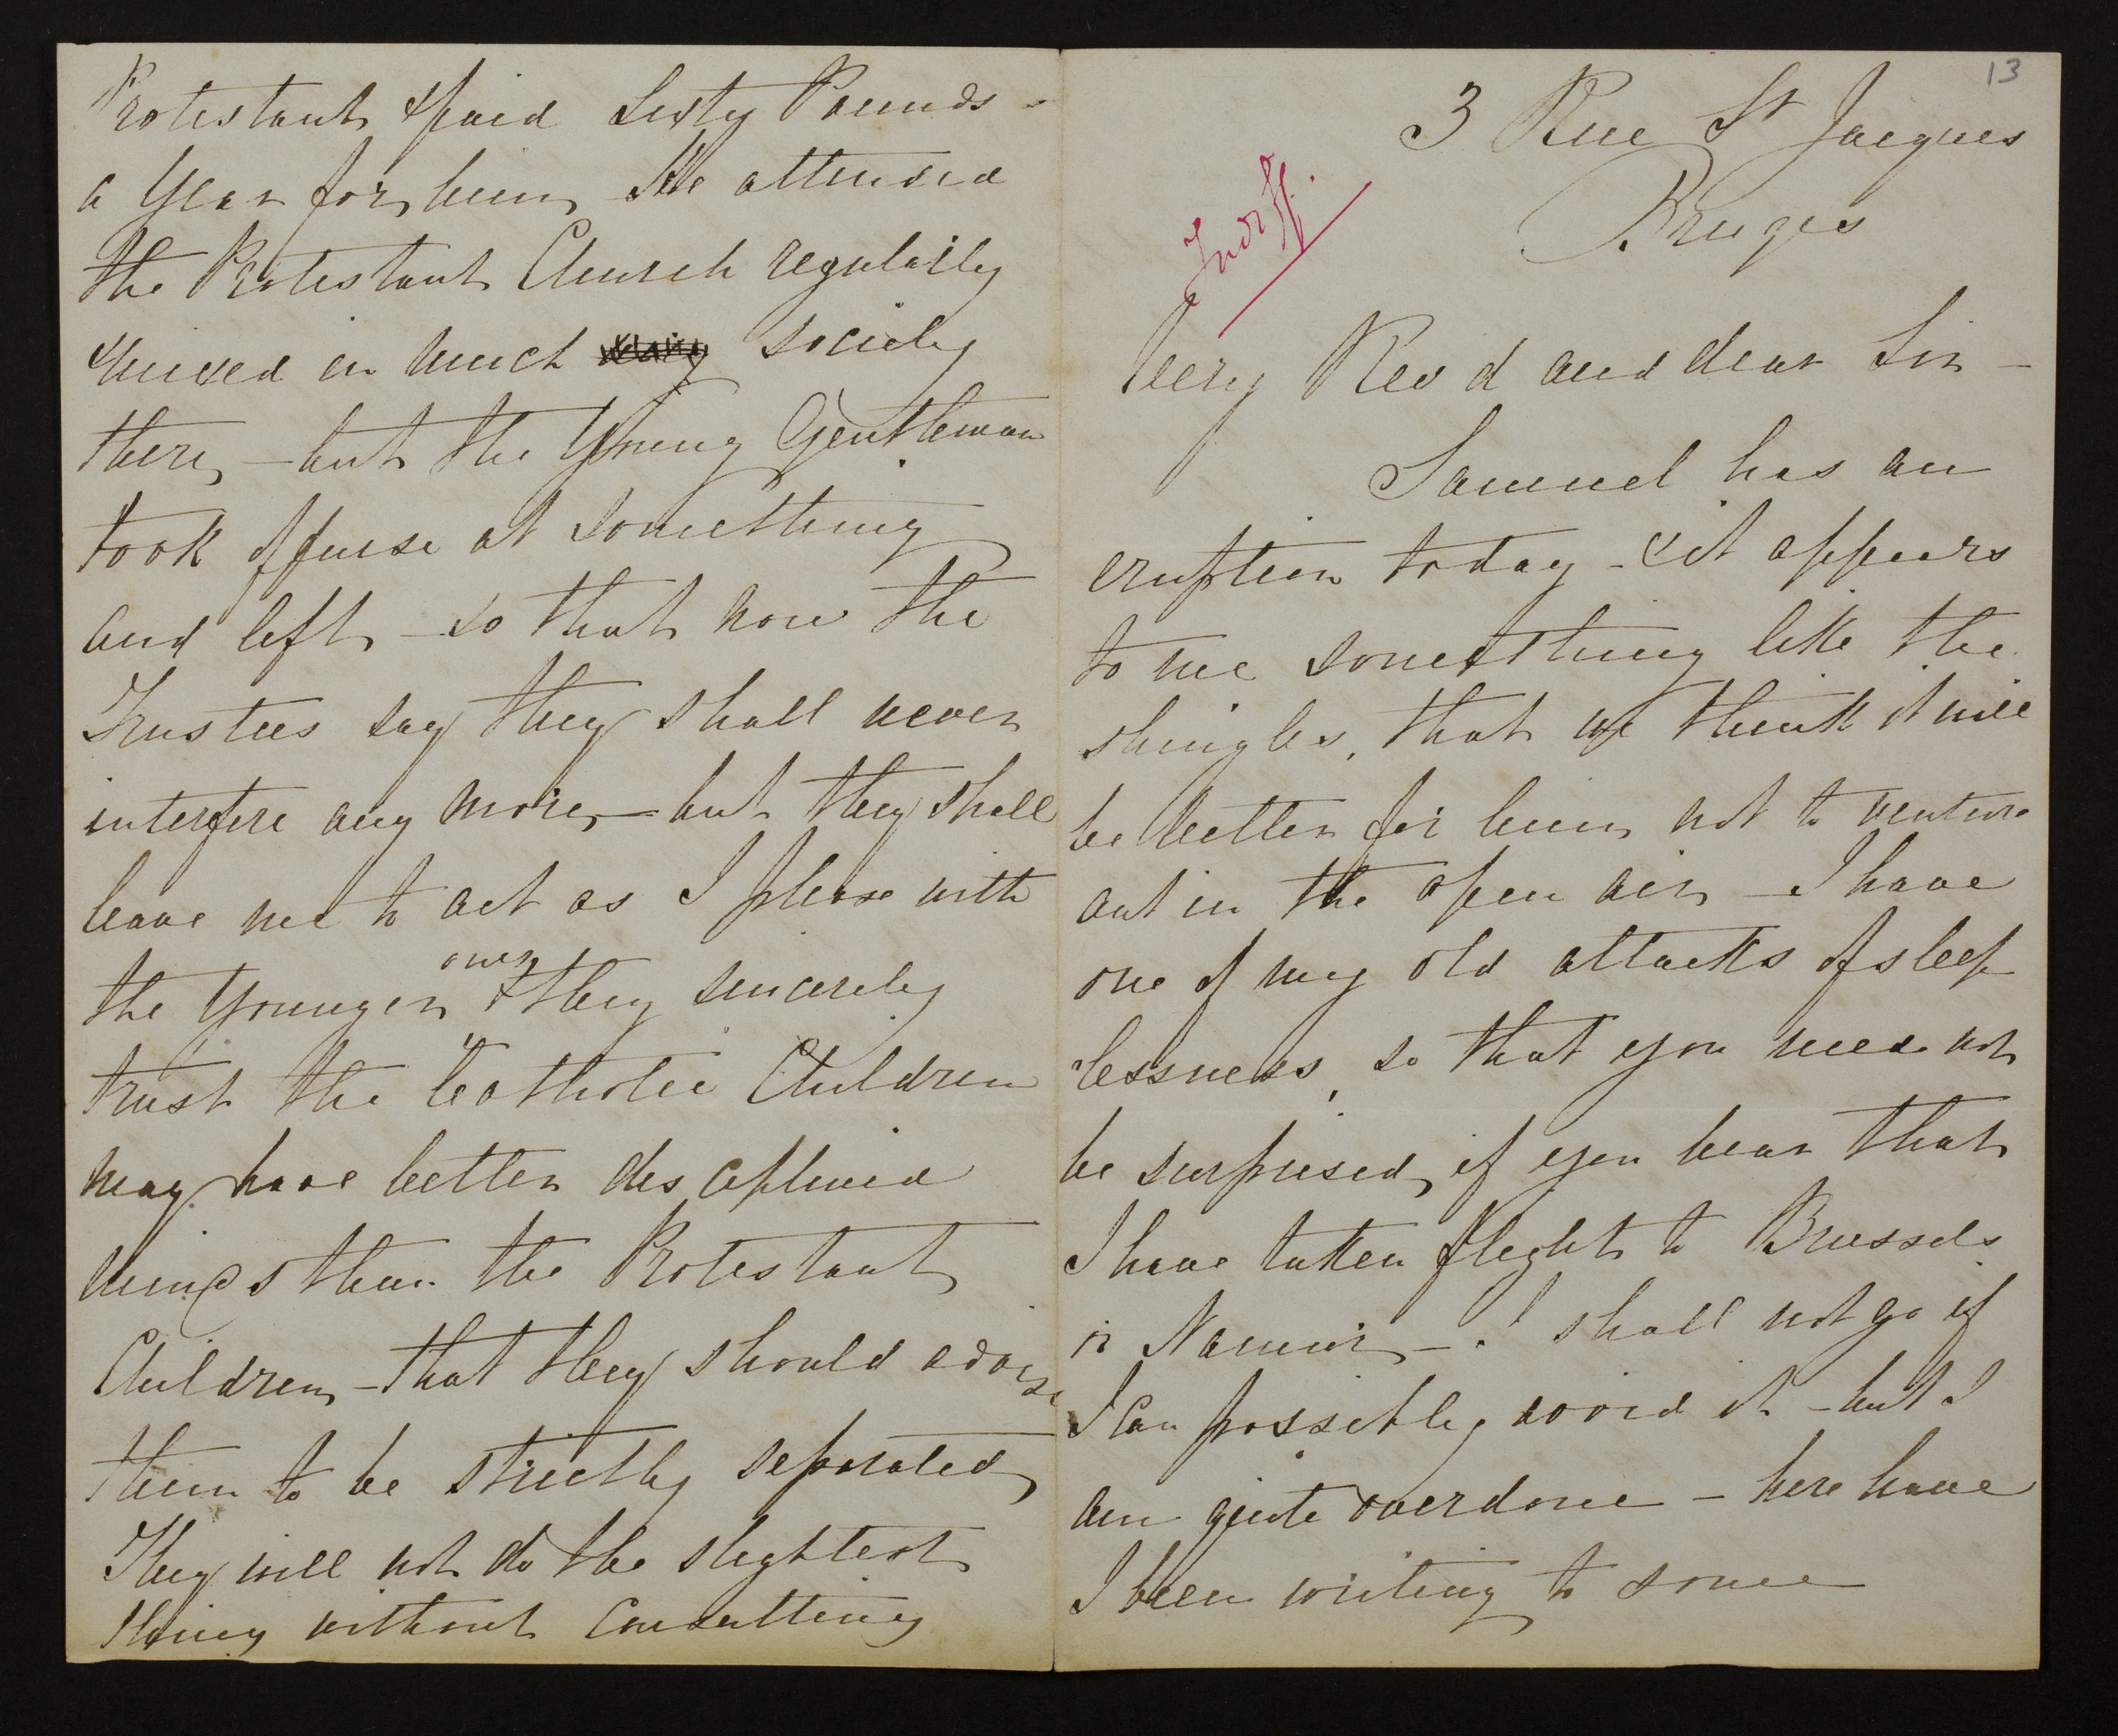 13
3 Rue St Jacques
Bruges
Indiff.
Very Rev d and dear Sir -
Samuel has an
eruption today - & it appears
to me something like the
shingles, that we think it will
be better for him not to venture
out in the open air - I have
one of my old attacks of sleep
lessness, so that you need not
be surprised, if you hear that
I have taken flight to Brussels
or Namur - I shall not go if
I can possibly avoid it - but I
am quite overdone - here have
I been writing to some
Protestant & paid Sixty Pounds -
a Year for him He attended
the Protestant Church regularly
& mixed in much society
there, - but the Young Gentleman
took offense at something
and left - so that now the
Trustees say they shall never
interfere any more, - but they shall
leave me to act as I please with
the Younger ones & they sincerely
trust the Catholic Children
may have better disciplined
minds than the Protestant
Children, - that they should advise
them to be strictly separated,
They will not do the slightest
thing without consulting